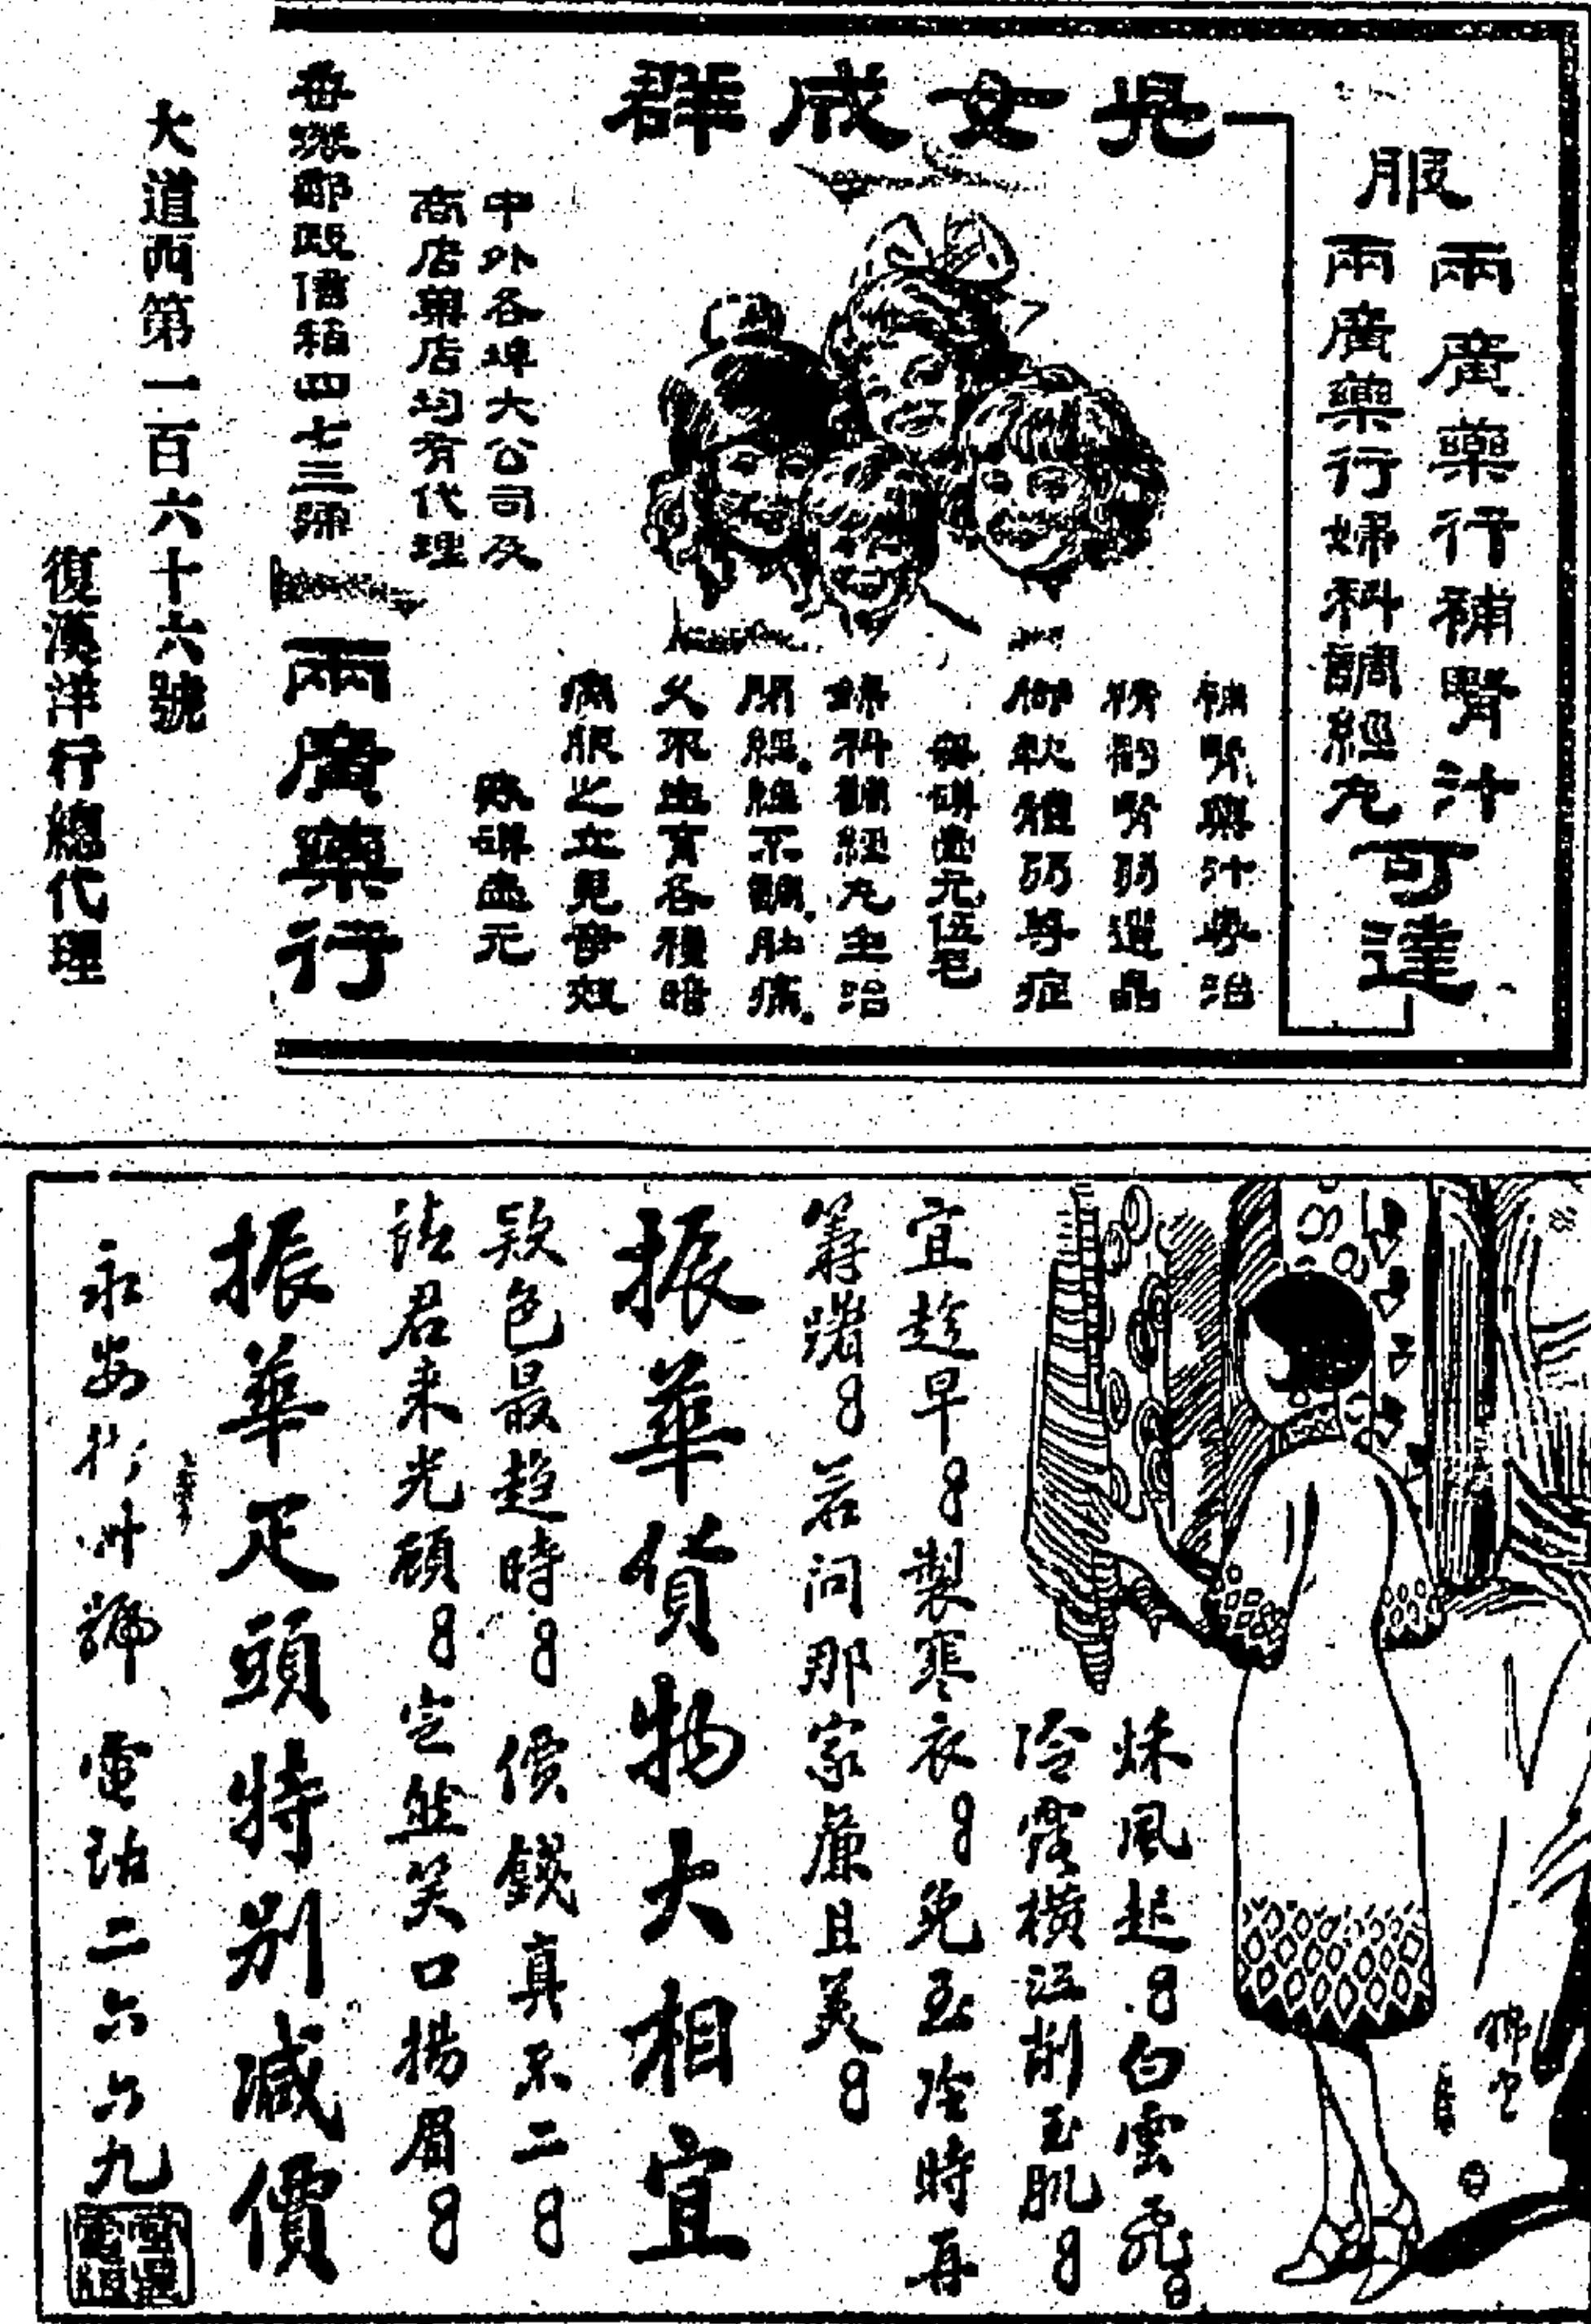 服
兩廣藥行補腎汁
兩廣藥行婦科調經丸
可達
兒女成群
補腎藥汁專治
精虧腎弱遺晶
脚軟體弱等症
每樽壹元伍毛
婦科調經丸主治
閉經經不調肚痛
久不生育各種暗
病服之立見奇效
每樽壹元
中外各埠大公司及
商店藥店均有代理
兩廣藥行
香港郵政信箱四七三號
大道西第一百六十六號
復漢洋行總代理
秋風起8白雲飛8
冷露橫江削玉肌8
宜趁早8製寒衣8免至冷時再
籌躇8若问那家廉且美8
振華貨物大相宜
欵色最趨時8價錢真不二8
請君来光顧8定然笑口揚眉8
振華疋頭特别减價
永安街卅號 電話二六六九